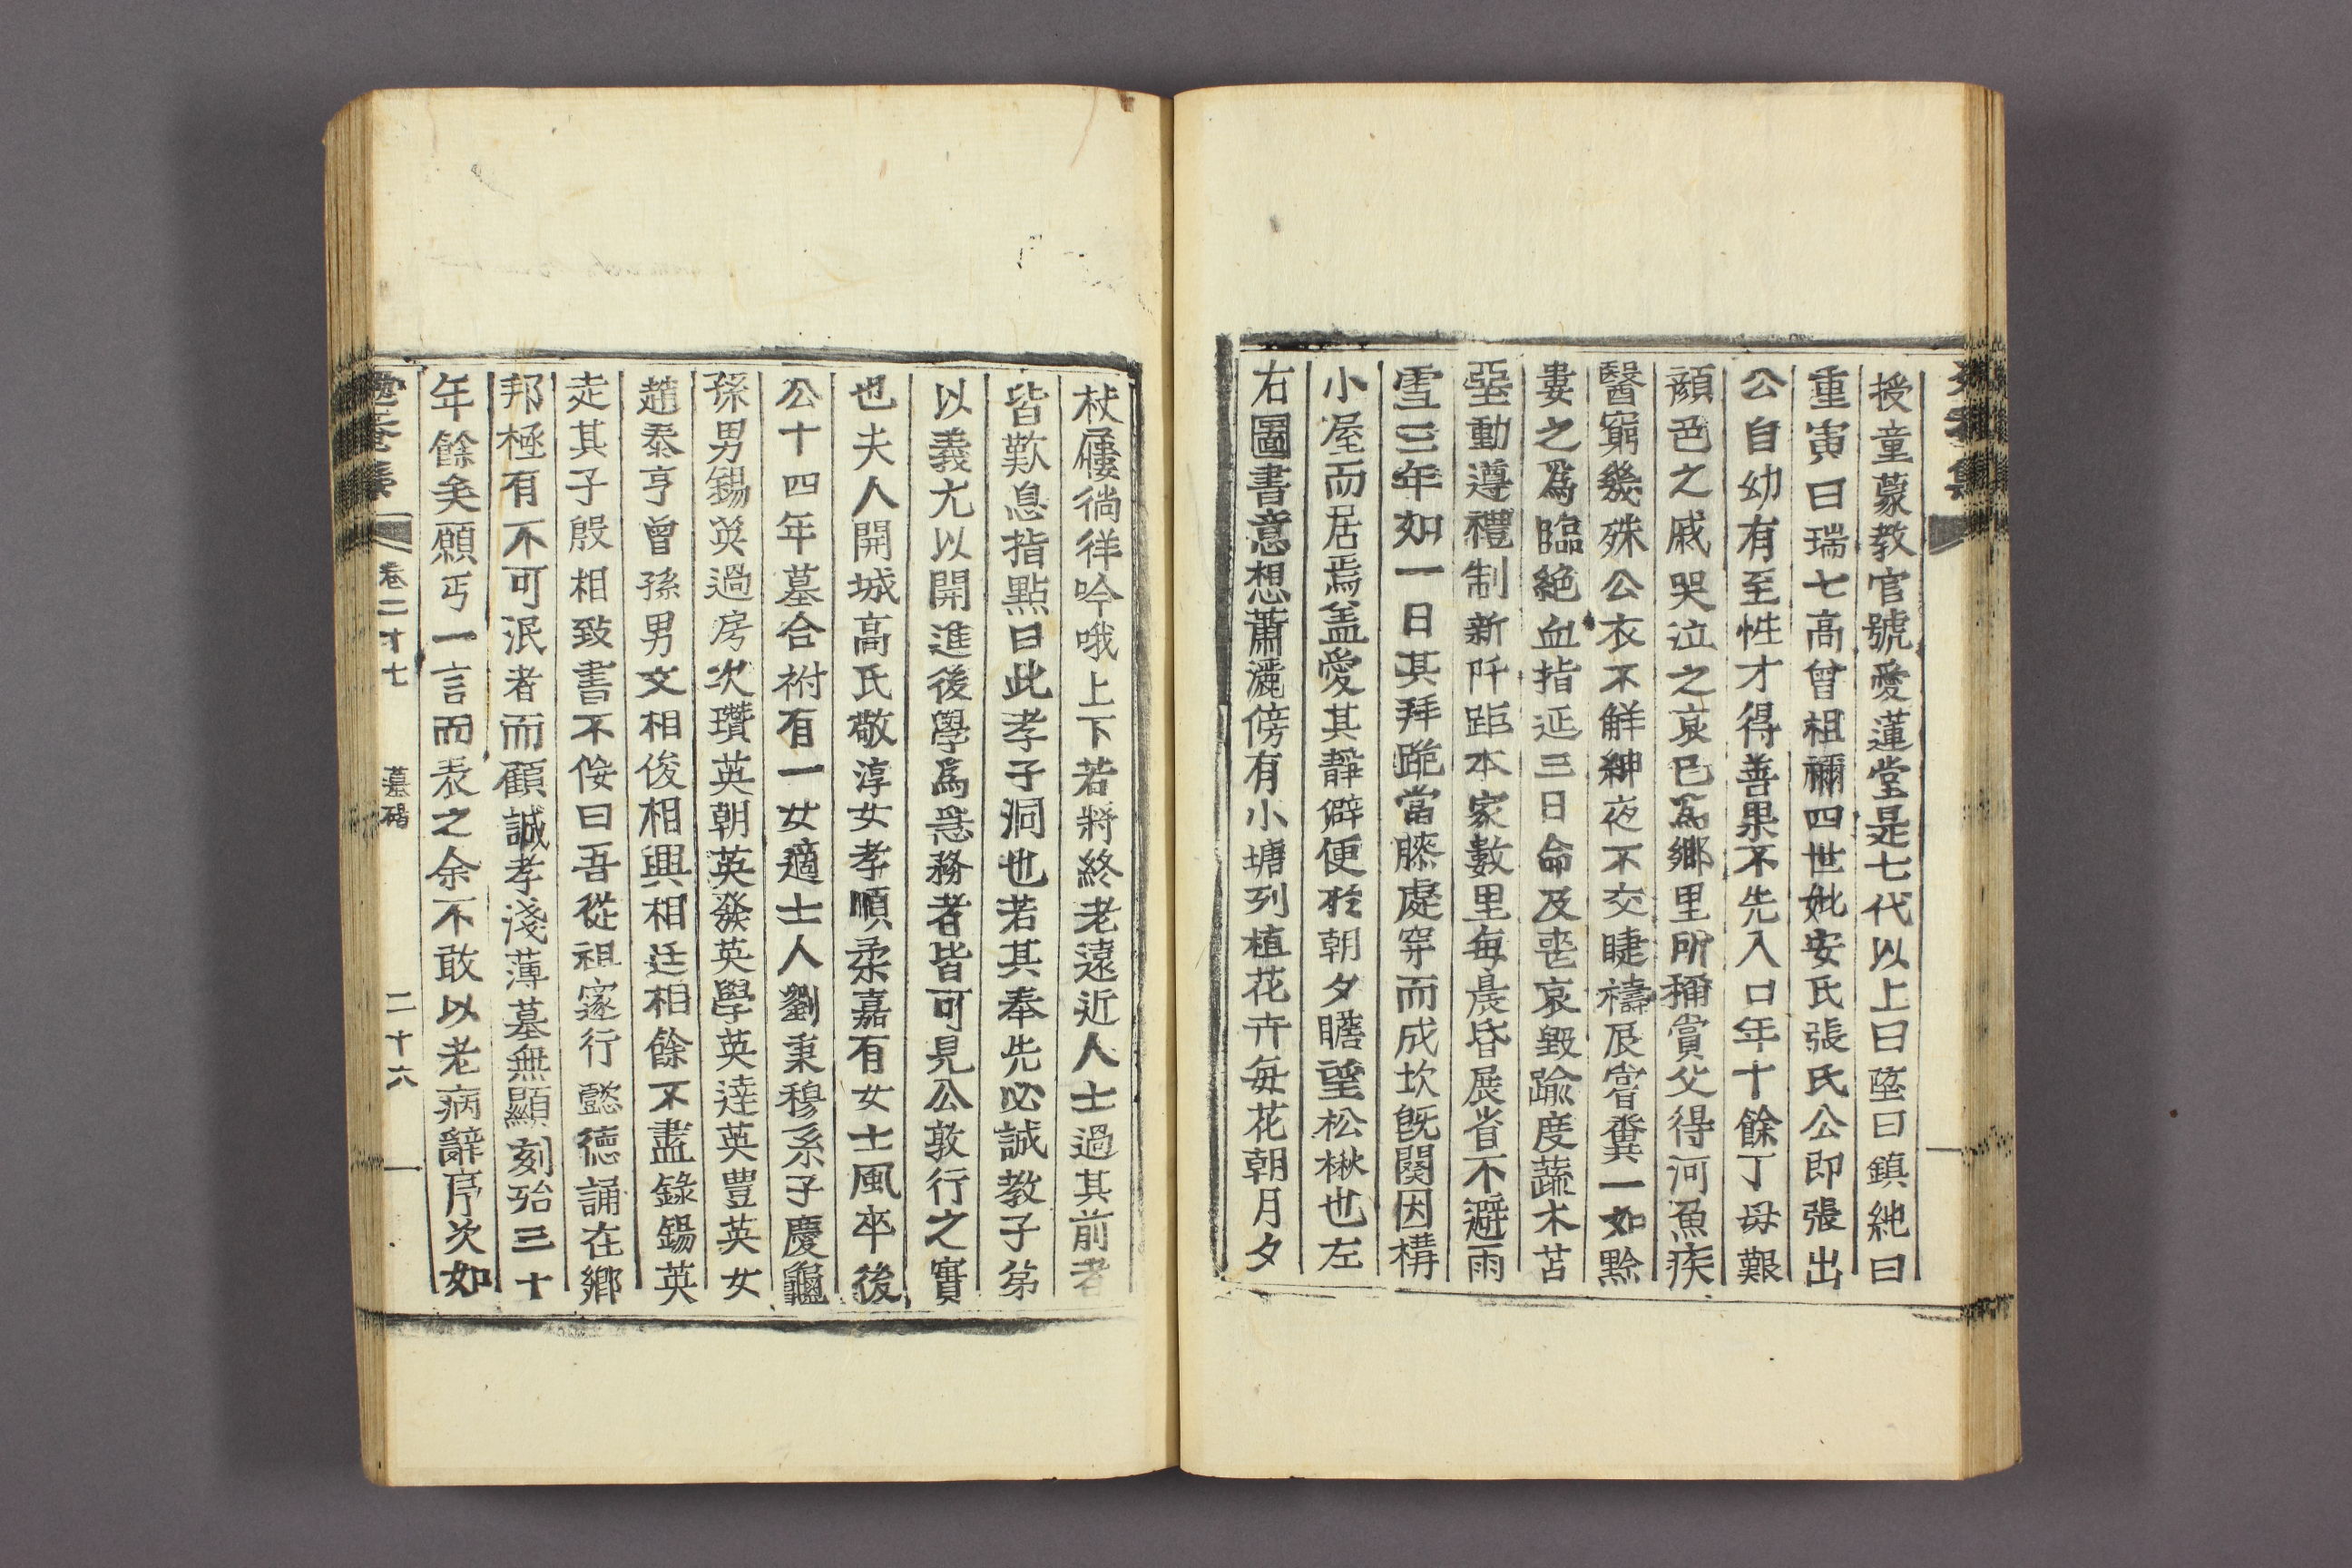 授童蒙教官號愛蓮堂是七代以上曰蓙曰鎮純曰
重寅曰瑞七高曾祖禰四世妣安氏張氏公即張出
公自幼有至性才得善果不先入口年十餘丁母艱
顔色之戚哭泣之哀已爲鄉里所稱賞父得河魚疾
醫窮幾殊公衣不解紳夜不交睫禱辰嘗糞一如黔
婁之爲臨絶血指延三日命及喪哀毀踰度蔬木苫
堊動遵禮制新阡距本家數里每晨昏展省不避雨
雪三年如一日其拜跪當膝處穿而成坎旣闋因構
小屋而居焉盖愛其靜僻便於朝夕瞻望松楸也左
右圖書意想蕭灑傍有小塘列植花卉每花朝月夕
杖屨徜徉吟哦上下若將終老遠近人士過其前者
皆歎息指點曰此孝子洞也若其奉先必誠教子弟
以義尤以開進後學爲急務者皆可見公敦行之實
也夫人開城高氏敬淳女孝順柔嘉有女士風卒後
公十四年墓合祔有一女適士人劉秉穆系子慶龜
孫男錫英過房次瓚英朝英發英學英逹英豊英女
趙泰亨曾孫男文相俊相興相廷相餘不盡錄錫英
走其子殷相致書不佞曰吾從祖邃行懿德誦在鄉
邦極有不可泯者而顧誠孝淺薄墓無顯刻殆三十
年餘矣願丐一言而表之余不敢以老病辭序次如
卷二十七 墓碣 二十六